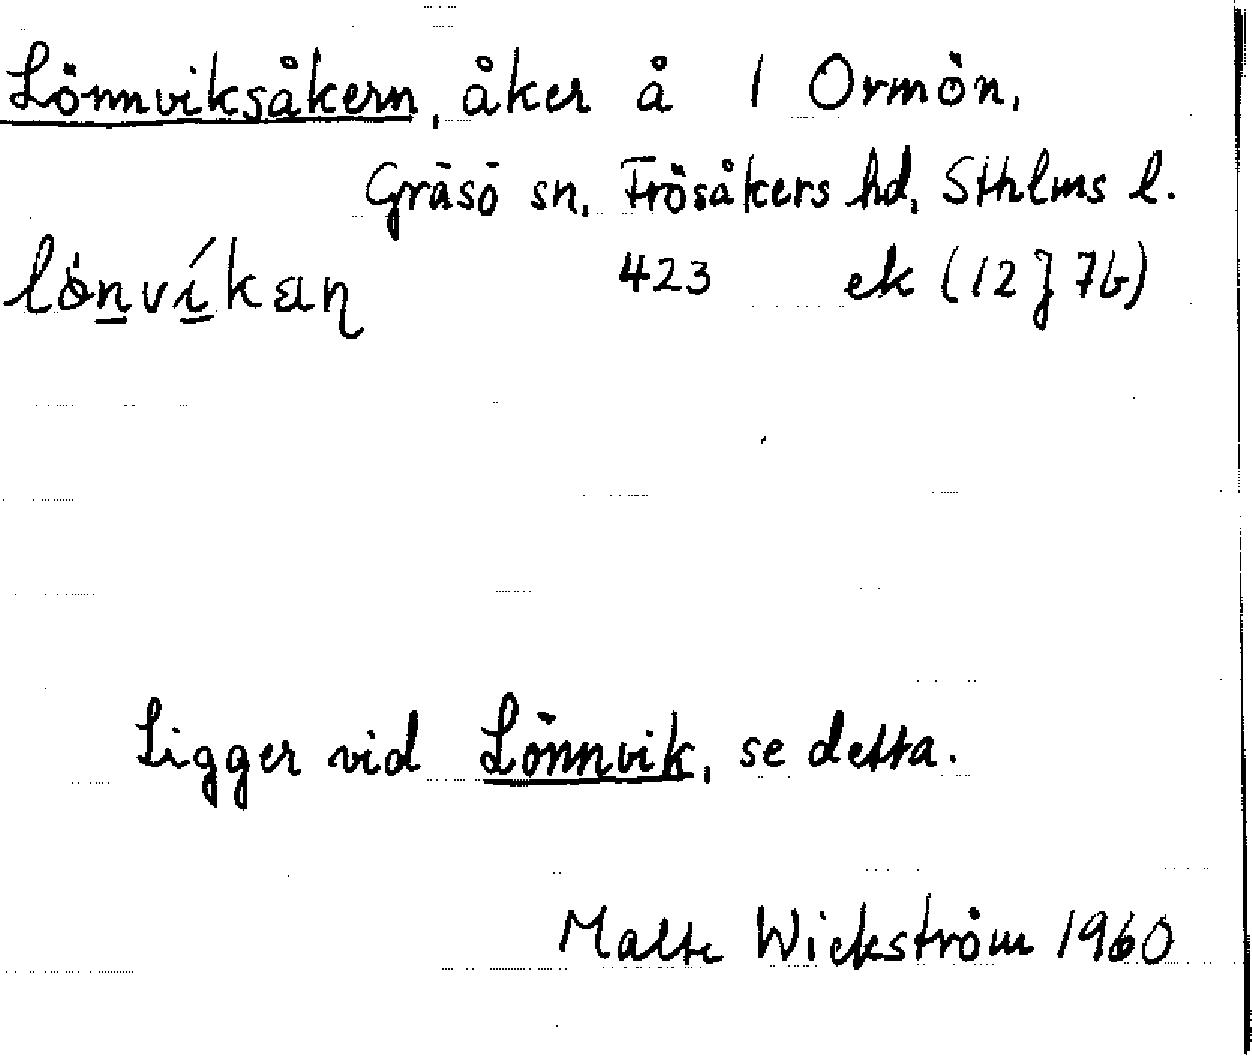 Lönnviksåkern, åker å 1 Ormön,
Gräsö sn, Frösåkers hd, Sthlms l.
423 ek (12 J 7b)
Ligger vid Lönnvik, se detta.
Malte Wickström 1960